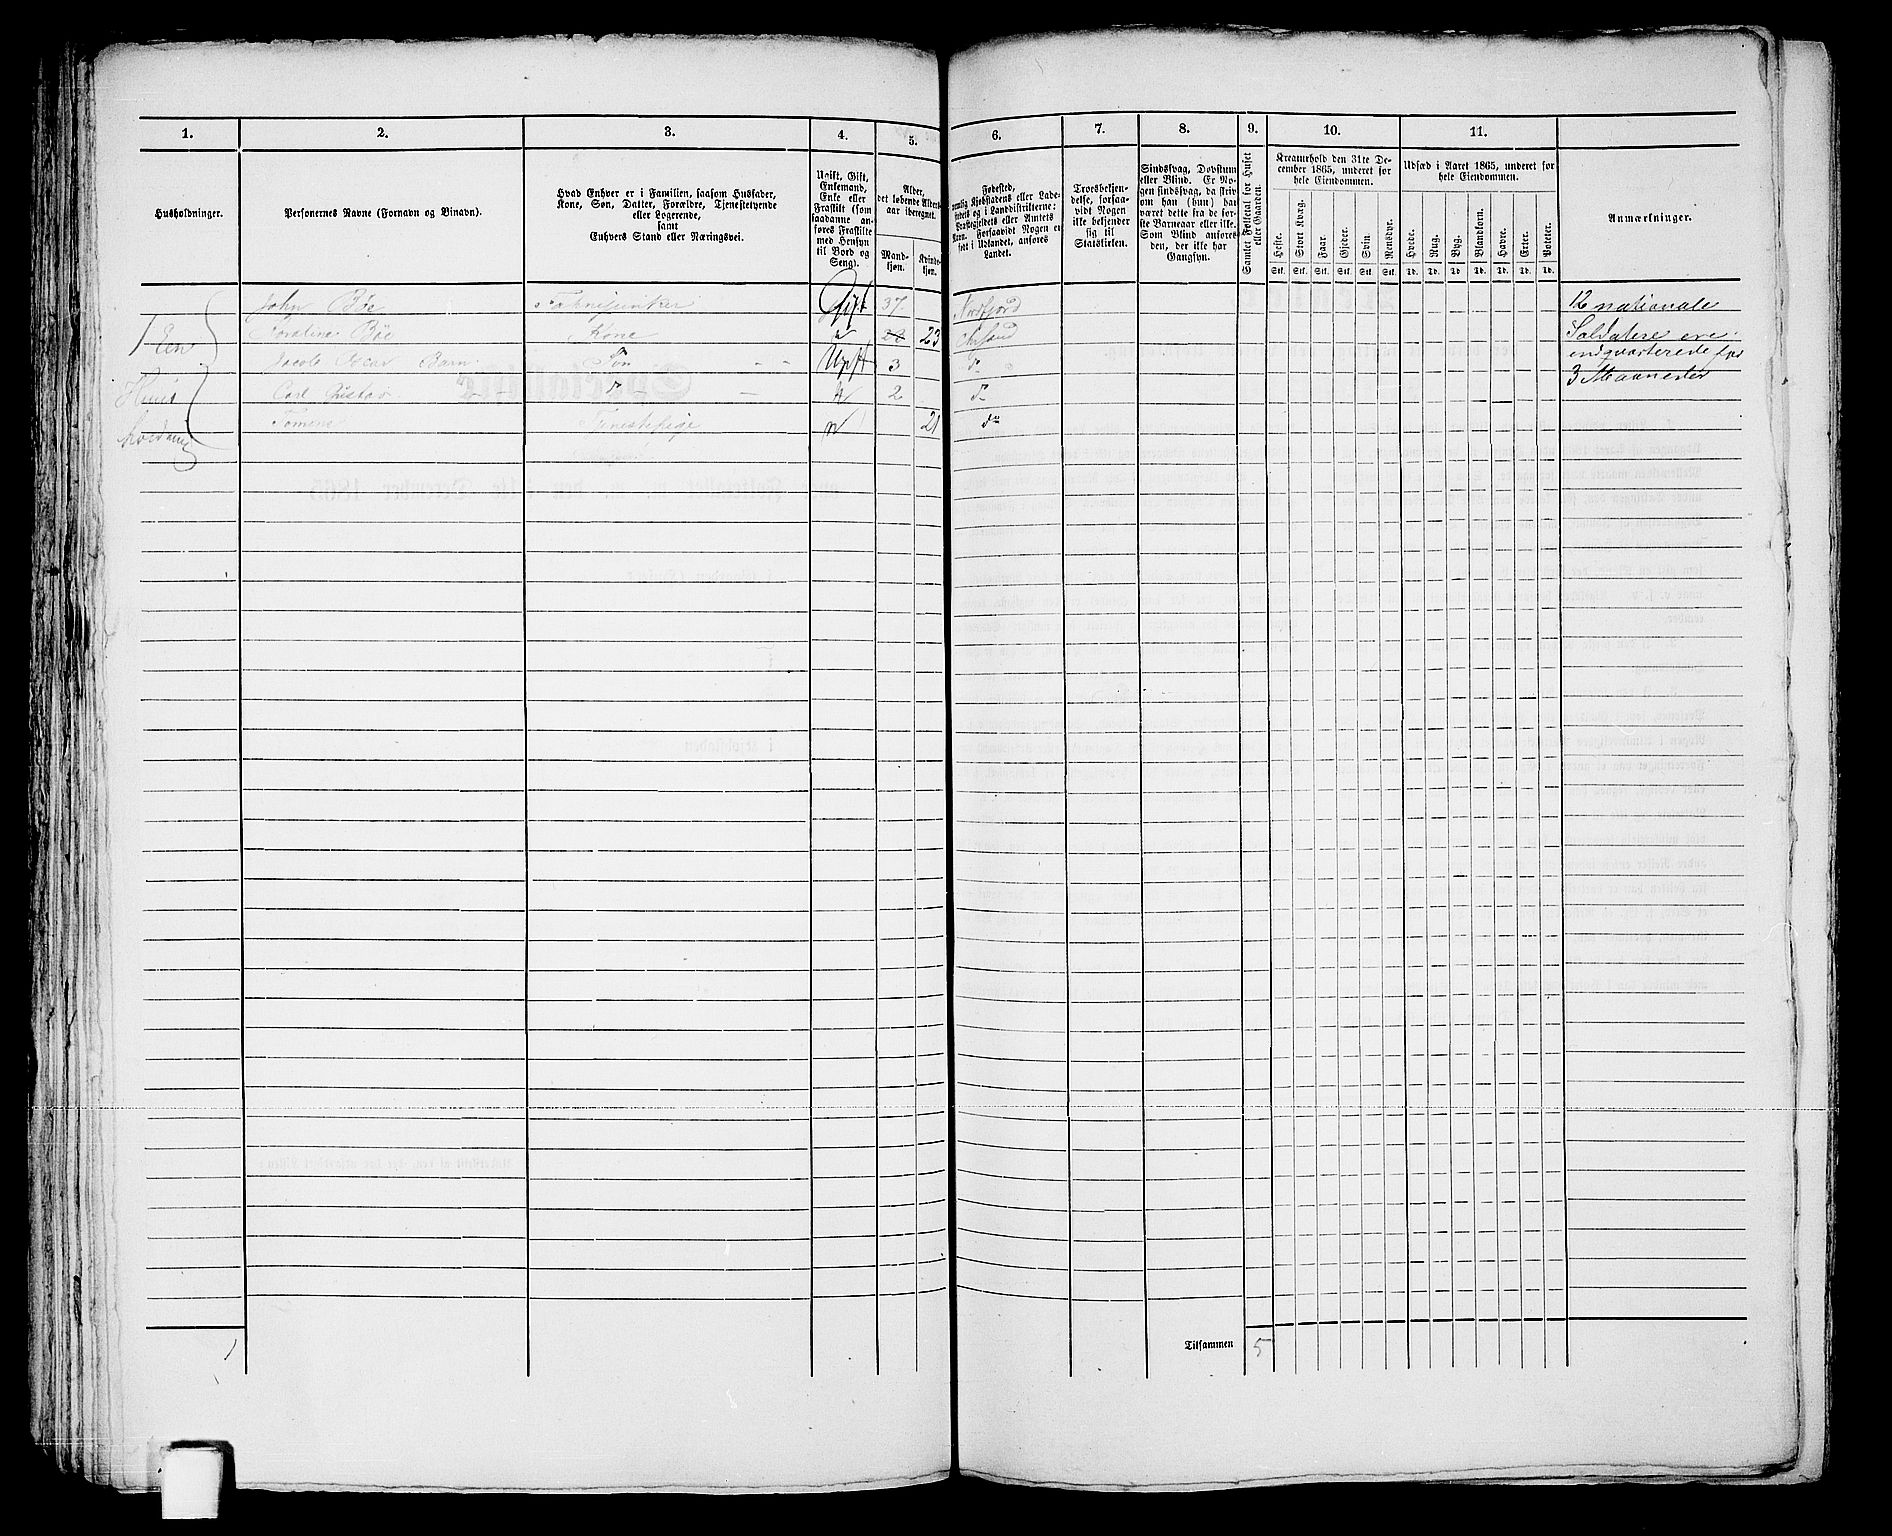 1.
2.
3.
4.
5.
6.
7.
8.
9.
10.
11.
Husholdninger.
Personernes Navne (Fornavn og Binavn).
Hvad Enhver er i Familien, saasom Husfader,
Kone, Søn, Datter, Forældre, Tjenestetyende
eller Logerende,
samt
Enhvers Stand eller Næringsvei.
Ugift, Gift,
Enkemand,
Enke eller
Fraskilt (som
saadanne an-
føres Fraskilte
med Hensyn
til Bord og
Seng).
Alder,
det løbende Alders-
aar iberegnet.
Mand-
kjøn.
Kvinde-
kjøn.
Fødested,
nemlig Kjøbstadens eller Lade-
stedets og i Landdistrikterne:
Præstegjeldets eller Amtets
Navn. Forsaavidt Nogen er
født i Udlandet, anføres
Landet.
Troesbekjen-
delse, forsaa-
vidt Nogen
ikke bekjender
sig til
Statskirken.
Sindssvag, Døvstum
eller Blind. Er No-
gen sindssvag, da skriv
om han (hun) har
været dette fra de før-
ste Barneaar eller ikke.
Som Blind anføres
den, der ikke har
Gangsyn.
Samlet Folketal for Huset
eller Gaarden.
Kreaturhold den 31te De-
cember 1865, underet for
hele Eiendommen.
Heste.
Stort Kvæg.
Faar.
Gjeder.
Svin.
Rensdyr.
Stk. Stk. Stk. Stk. Stk. Stk.
Udsæd i Aaret 1865, underet for
hele Eiendommen.
Hvede.
Rug.
Byg.
Blandkorn.
Havre.
Erter.
Poteter.
Td. Td. Td. Td. Td. Td. Td.
Anmærkninger.
John Bøe Gift 37 Nordfjord
Bøe Kone 23
Jacob Oscar Barn Søn Ugift 3 do
Carl Gustav do 2 do
Tomine 21 do
Een
12 nationale
Soldatere ere
indqvarterede for
3 Maaneder
Tilsammen 5
1